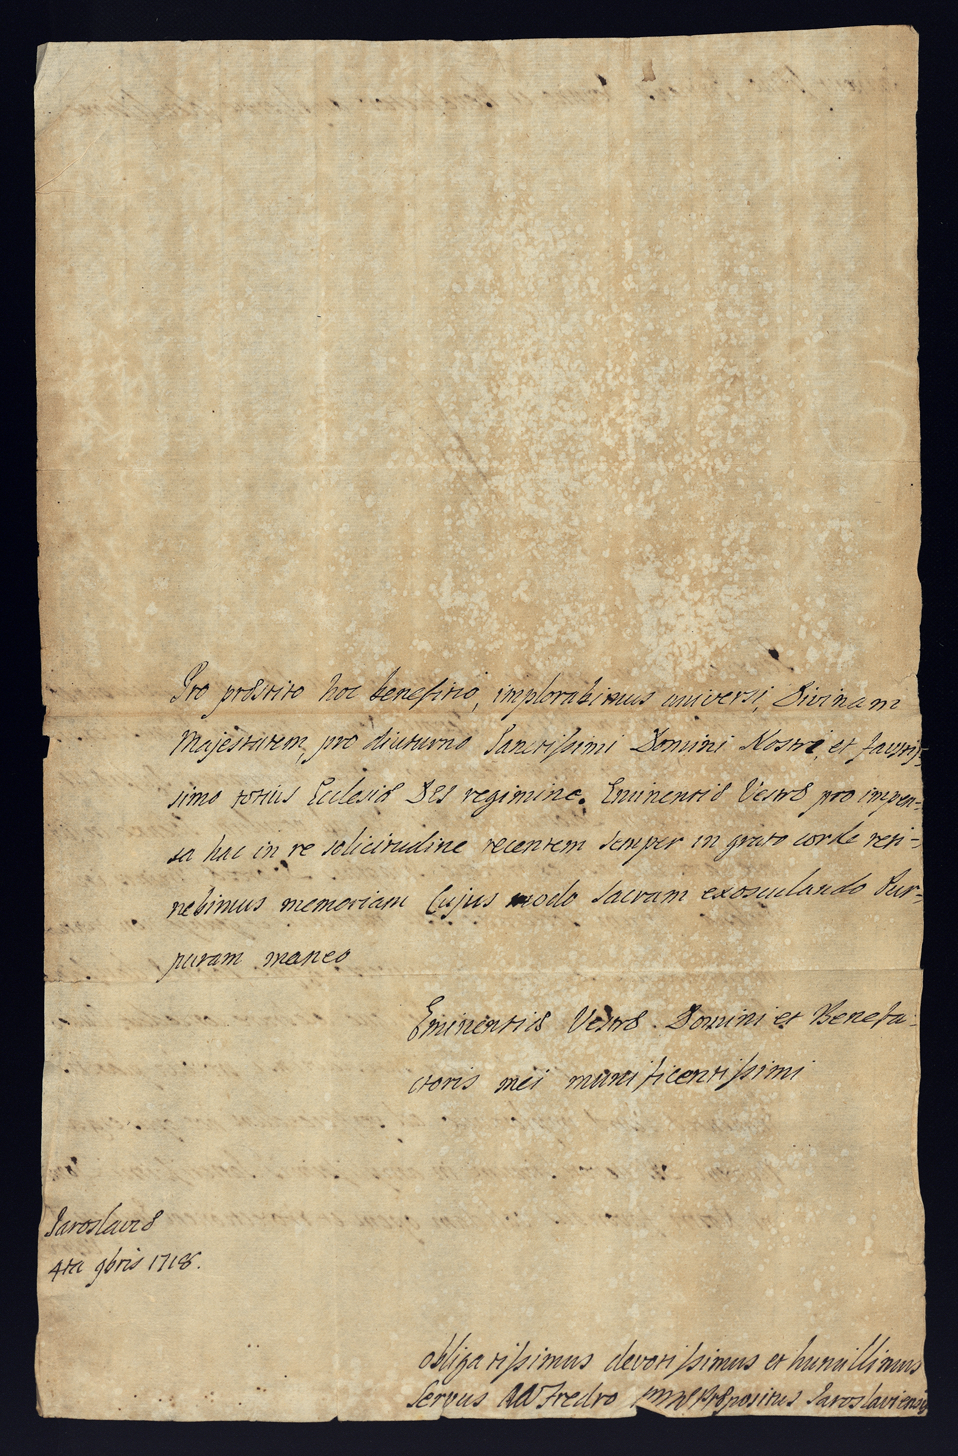 Pro præstito hoc benefitio, implorabimus universi, Divinam
Majestatem, pro diuturno Sanctissimi Domini Nostri, et faustis-
simo totius Ecclesiæ DEI regimine. Eminentiæ Vestræ pro impen-
sa hac in re solicitudine recentem semper in grato corde reti-
nebimus memoriam Cujus modo sacram exosculando Pur-
puram maneo
Eminentiæ Vestræ Domini et Benefa-
ctoris mei munificentissimi
Jaroslaviæ
4ta 9bris 1718.
obligatissimus devotissimus et humillimus
servus Fredro Præpositus Jaroslaviensis